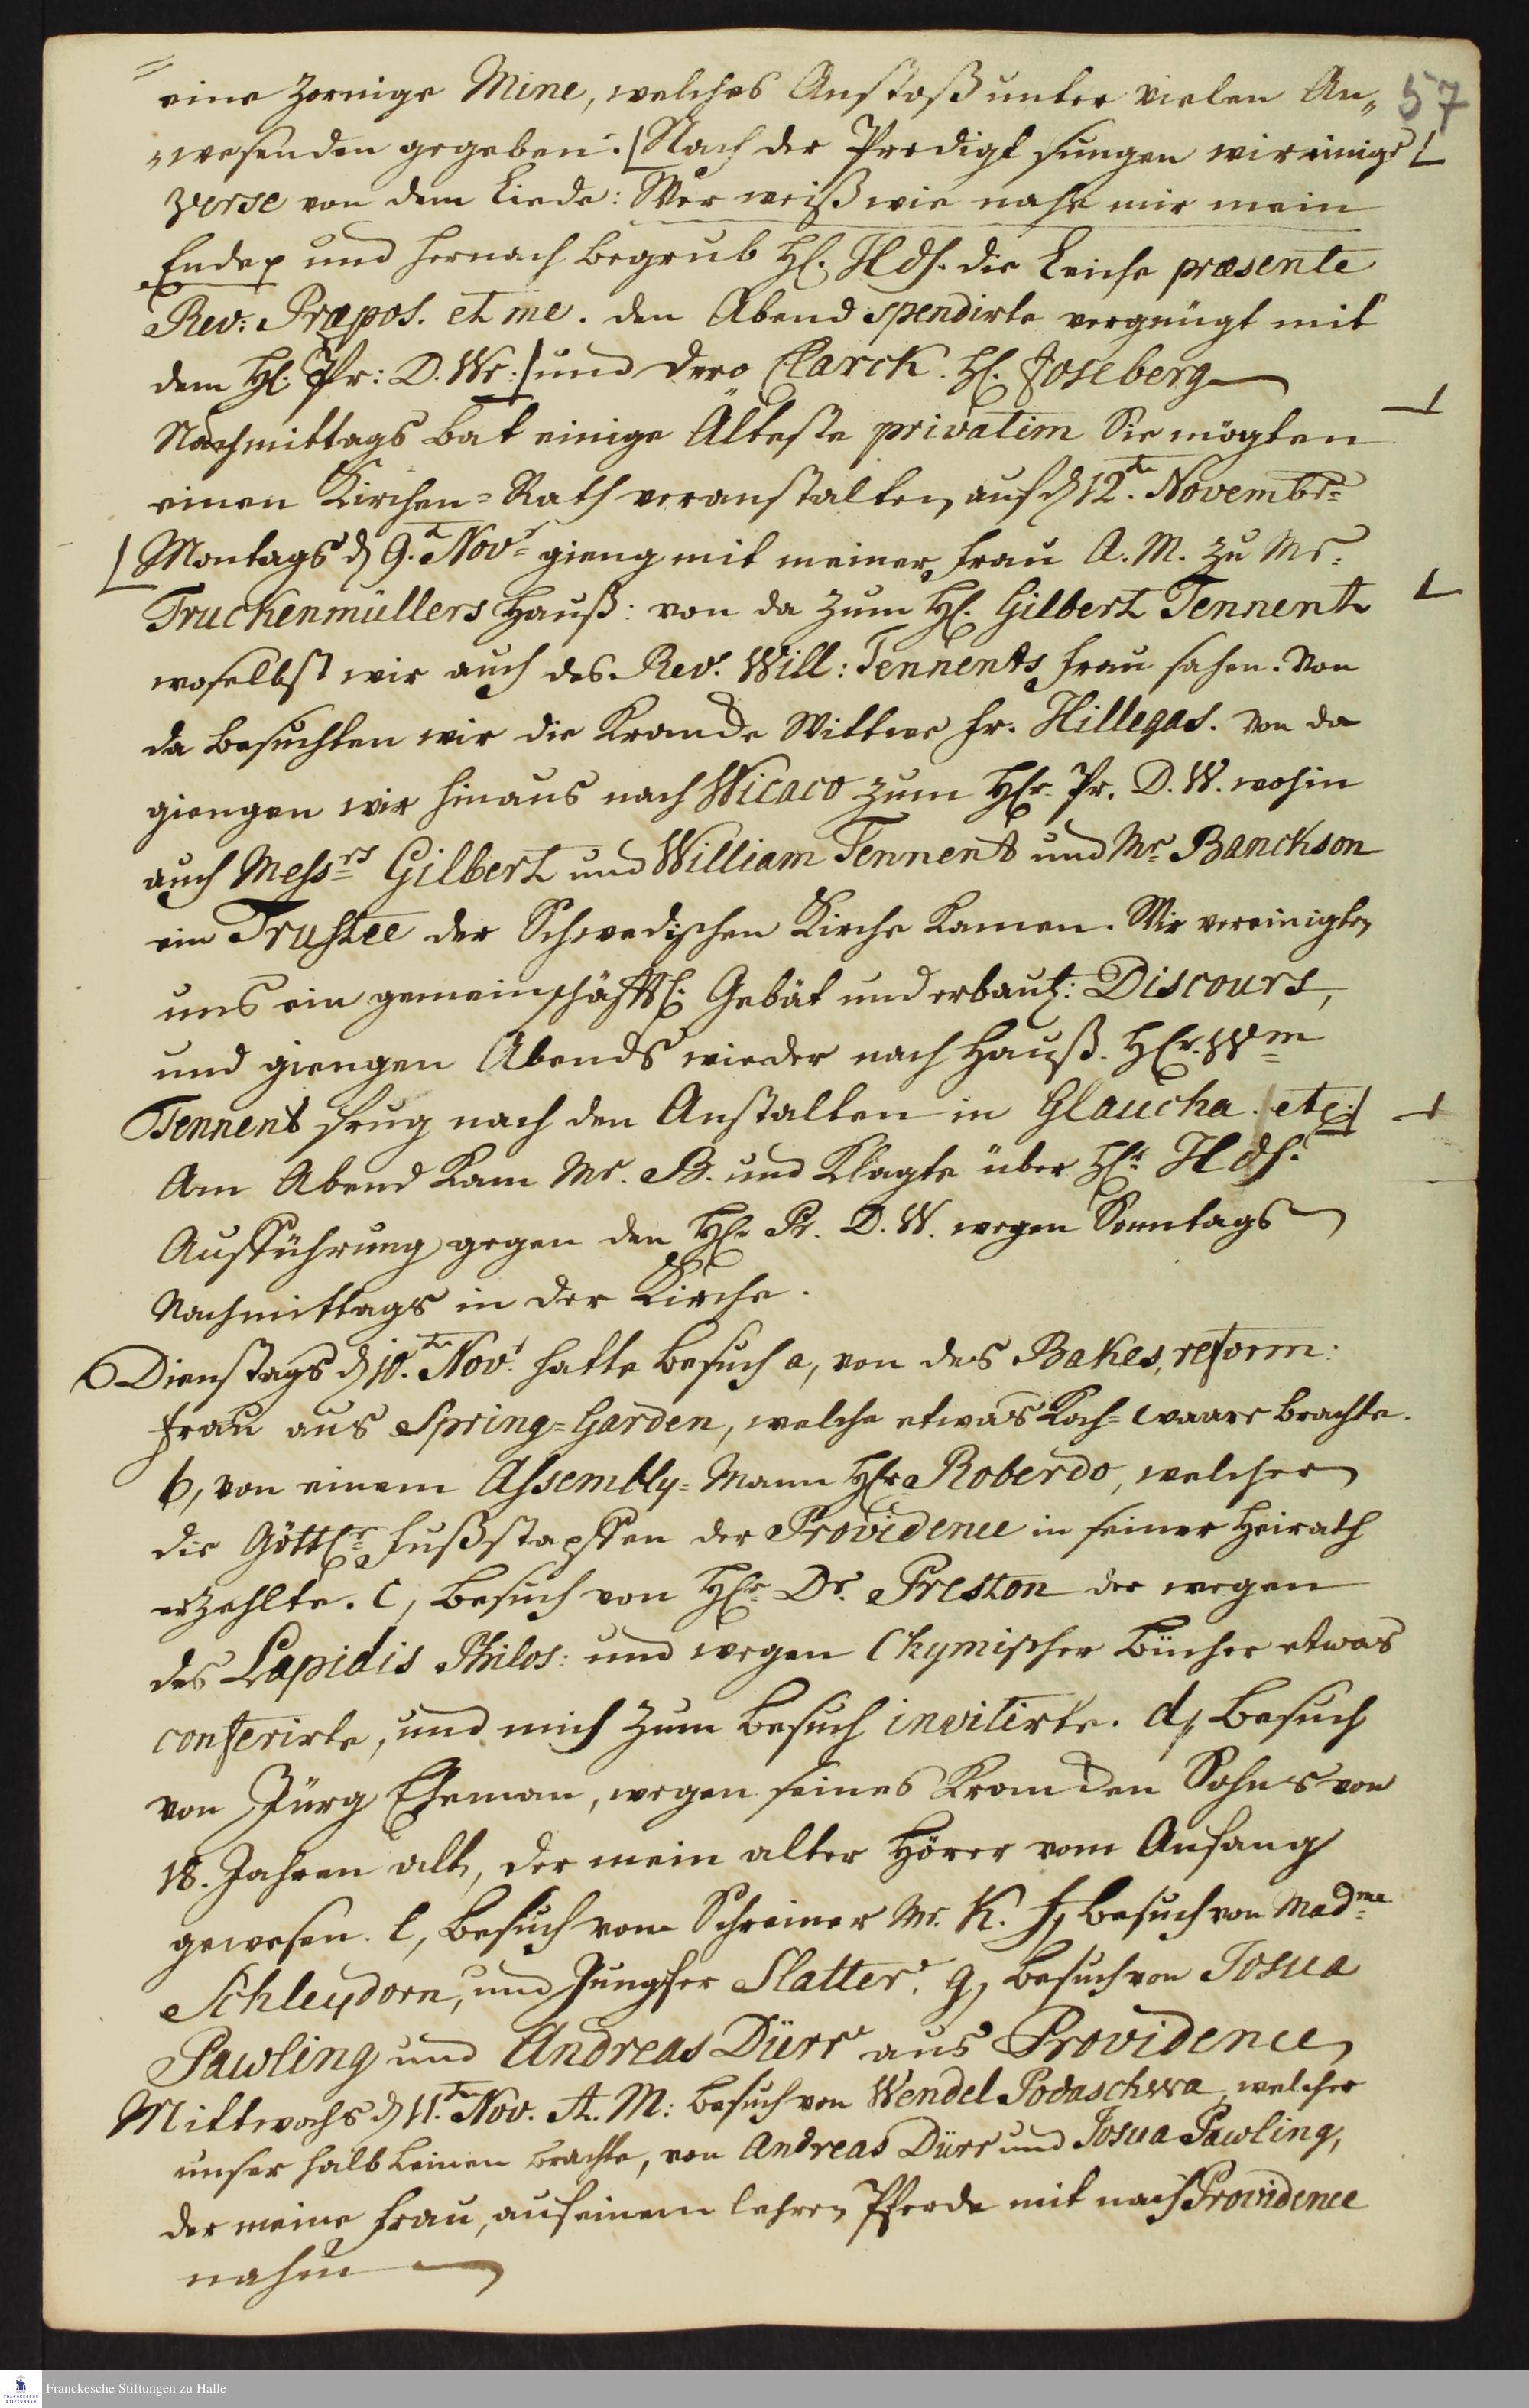 57
eine zornige Mine, welches Anstoß unter vielen An„
„wesenden gegeben. [Nach der Predigt sungen wir einige
Verse von dem Liede: Wer weiß wie nahe mir mein
Ende und hernach begrub H. Hds. die Leiche præsente
Rev: Præpos. et me. den Abend spendirte vergnügt mit
dem H. Pr: D. Wr:] und dero Clarck. H. Joseberg
Nachmittags bat einige Älteste privatim Sie mögten
einen Kirchen=Rath veranstalten, auf d 12t. Novembr=
[Montags d 9.t Novr= gieng mit meiner Frau A. M. zu Mr:
Truckenmüllers Hauß: von da zum H. Gilbert Tennent
woselbst wir auch des Rev. Will: Tennents Frau sahen. Von
da besuchten wir die Krancke Wittwe Fr. Hillegas. Von da
giengen wir hinaus nach Wicaco zum Hr. Pr. D. W. wohin
auch Messrs Gilbert und William Tennent und Mr Banckson
ein Trustee der Schwedischen Kirche kamen. Wir vereinigten
uns ein gemeinschäfftl. Gebät und erbaul: Discours,
und giengen Abends wieder nach Hauß. Hr. Wm
Tennent frug nach den Anstalten in Glaucha. etc:]
Am Abend kam Mr. B. und klagte über Hr. Hds.
Aufführung gegen den Hr. Pr. D. W. wegen Sonntags
Nachmittags in der Kirche.
Dienstags d 10.t Nov. hatte besuch a, von des Bakes, reform:
Frau aus Spring=Garden, welche etwas Koch=waare brachte.
b, von einem Assembly=Mann Hr Roberdo, welcher
die Göttl. Fußstapffen der Providence in seiner Heirath
erzehlte. c, Besuch von Hr Dr. Preston der wegen
des Lapidis Philos: und wegen Chymischer Bücher etwas
conferirte, und mich zum Besuch invitirte. d, Besuch
von Jürg Eheman, wegen seines Krancken Sohns von
18. Jahren alt, der mein alter Hörer vom Anfang
gewesen. e, Besuch vom Schreiner Mr. K. f, Besuch von Madme
Schleydorn, und Jungfer Slatter. g, Besuch von Josua
Pawling und Andreas Dürr aus Providence
Mittwochs d 11.t Nov. A. M: Besuch von Wendel Podaschwa, welcher
unser halb Leinen brachte, von Andreas Dürr und Josua Pawling,
der meine Frau, auf einem lehren Pferde mit nach Providence
nahm
Franckesche Stiftungen zu Halle